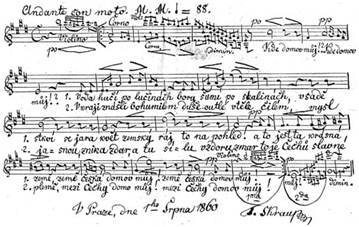 Andante con moto. M. M. ♩= 88.
Violino Corno
pp pp
Kde domov můj? Kde domov
můj! 1. Voda hučí po lučinách, bory šumí po skalinách, v sadě
2. V kraji znáš-li Bohumilém duše outlé v těle čilém, mysl
1. skví se jara květ zemský ráj to na pohled! a to jest ta krásná,
2. jasnou, znik a zdar, a tu sílu vzdoru zmar to je Čechů slavné
1. země, země česká domov můj! země česká domov můj!
2. plémě, mezi Čechy domov můj! mezi Čechy domov můj!
V Praze, dne 1ho Srpna 1860 F. Škraup